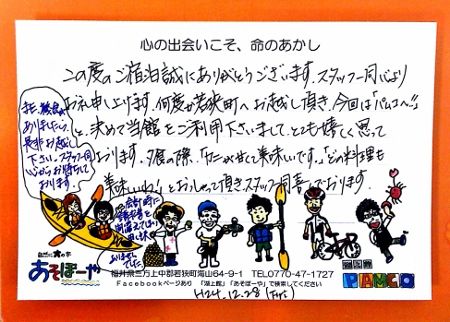 心の出会いこそ、命のあかし
この度のご宿泊誠にありがとうございます。スタッフ一同心より
お礼申し上げます。何度か若狭町へお越し頂き、今回は「パムコへ!!」
と、決めて当館をご利用下さいまして、とても嬉しく思って
おります。夕食の際、「カニが甘くて美味しいです。」「どの料理も
美味しいわ!」とおっしゃって頂きスタッフ同喜んでおります。
又、機会が
ありましたら
是非お越し
下さい。スタッフ一同
心からお待ちして
おります。
自然に大の字
あそぼーや
湖上館
PAMCO
福井県三方上中郡若狭町海山64-9-1 TEL0770-47-1727
Facebookページあり 「湖上館」「あそぼーや」で検索してください
H24.12.28(Fri)